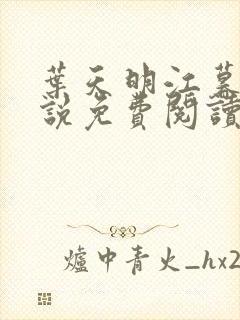 葉天明江慕
說免費閱讀
爐中青火_hx2